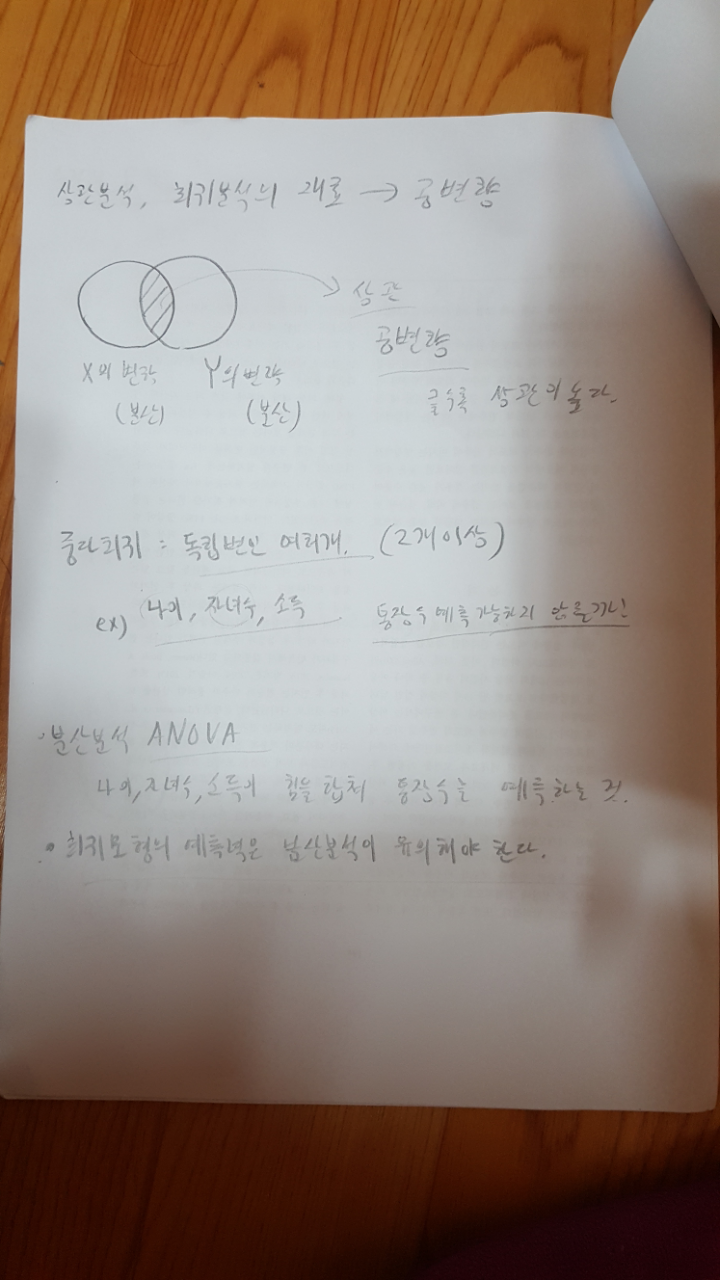 상관분석, 회귀분석의 재료 → 공변량
상관
공변량
클수록 상관이 높다.
X의 변량 Y의 변량
(분산) (분산)
중다회귀 : 독립변인 여러개. (2개 이상)
ex) 나이, 자녀수, 소득 통장수 예측 가능하지 않을까!
·분산분석 ANOVA
나이, 자녀수, 소득이 힘을 합쳐 통장수를 예측하는 것.
· 회귀모형의 예측력은 분산분석이 유의해야 한다.